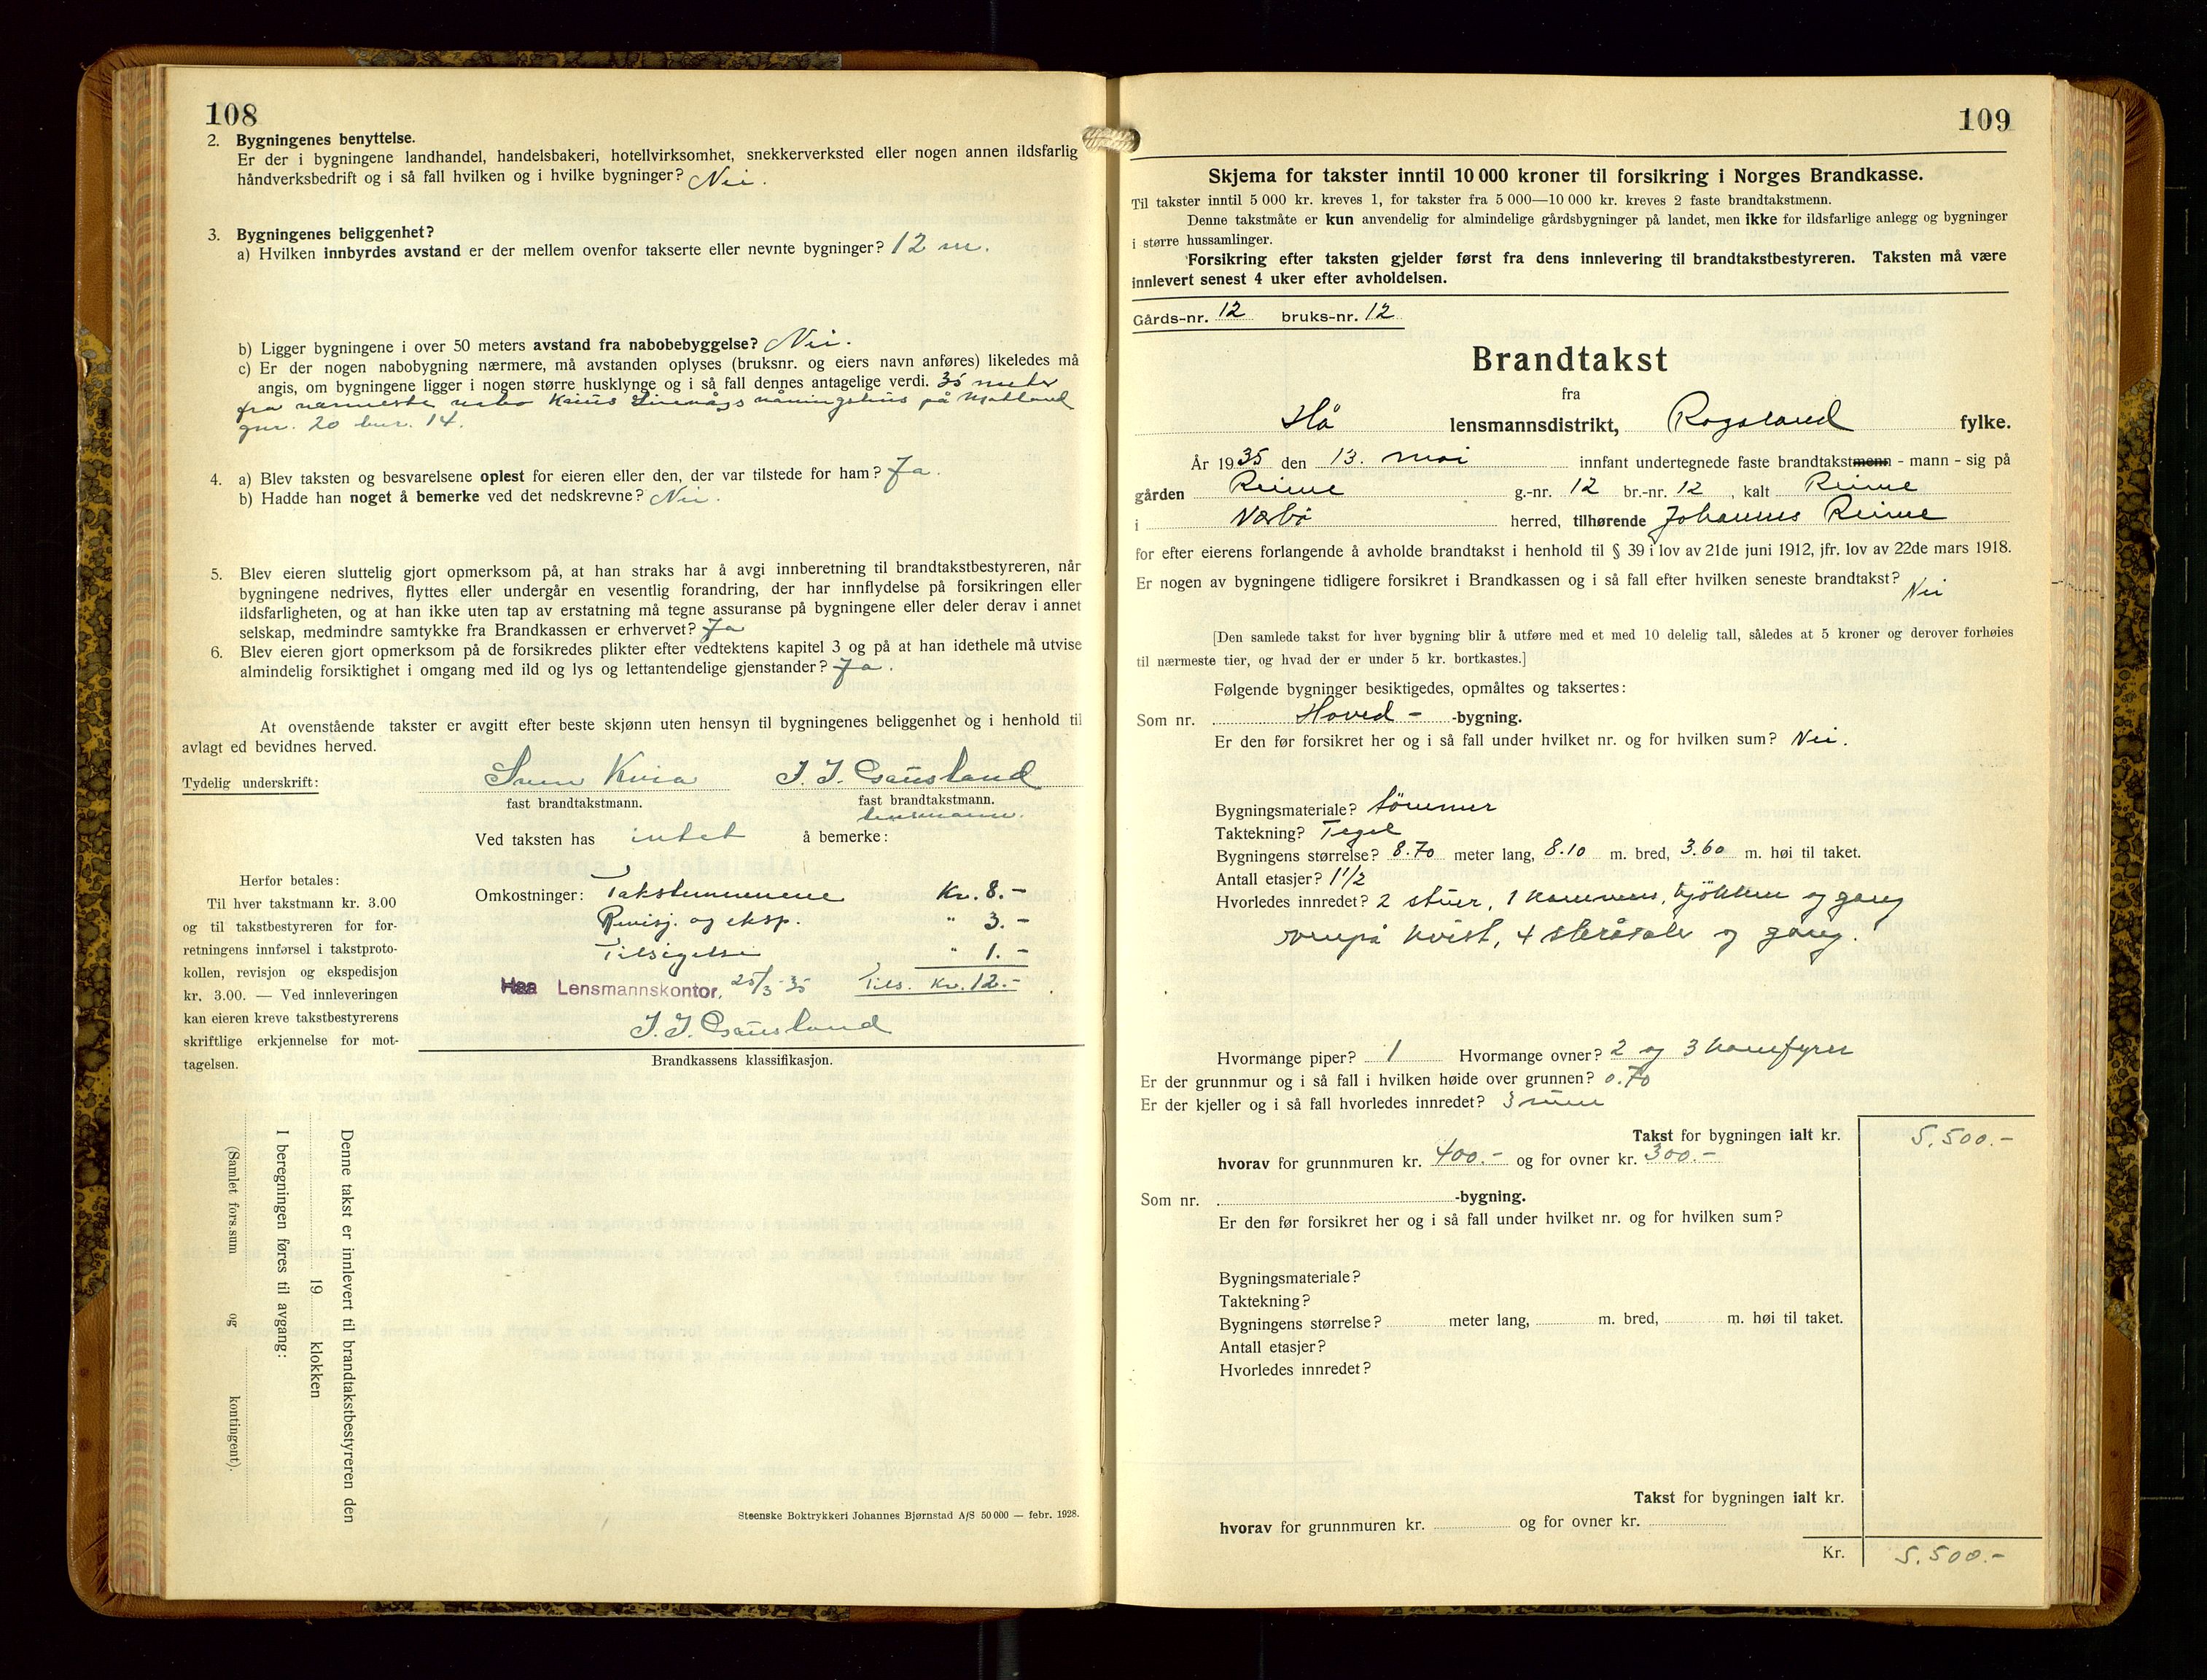 108
2. Bygningenes benyttelse.
Er der i bygningene landhandel, handelsbakeri, hotellvirksomhet, snekkerverksted eller nogen annen ildsfarlig
håndverksbedrift og i så fall hvilken og i hvilke bygninger? Nei.
3. Bygningenes beliggenhet?
a) Hvilken innbyrdes avstand er der mellem ovenfor takserte eller nevnte bygninger? 12 m.
b) Ligger bygningene i over 50 meters avstand fra nabobebyggelse? Nei.
c) Er der nogen nabobygning nærmere, må avstanden oplyses (bruksnr. og eiers navn anføres) likeledes må
angis, om bygningene ligger i nogen større husklynge og i så fall dennes antagelige verdi. 35 meter
fra nærmeste nabo våningshus på Motland
gnr. 20 bnr. 14.
4. a) Blev taksten og besvarelsene oplest for eieren eller den, der var tilstede for ham? Ja.
b) Hadde han noget å bemerke ved det nedskrevne? Nei.
5. Blev eieren sluttelig gjort opmerksom på, at han straks har å avgi innberetning til brandtakstbestyreren, når
bygningene nedrives, flyttes eller undergår en vesentlig forandring, der har innflydelse på forsikringen eller
ildsfarligheten, og at han ikke uten tap av erstatning må tegne assuranse på bygningene eller deler derav i annet
selskap, medmindre samtykke fra Brandkassen er erhvervet? Ja
6. Blev eieren gjort opmerksom på de forsikredes plikter efter vedtektens kapitel 3 og på at han idethele må utvise
almindelig forsiktighet i omgang med ild og lys og lettantendelige gjenstander? Ja.
At ovenstående takster er avgitt efter beste skjønn uten hensyn til bygningenes beliggenhet og i henhold til
avlagt ed bevidnes herved.
Tydelig underskrift: Sven Kvia J. J. Gausland
fast brandtakstmann. fast brandtakstmann.
lensmann.
Ved taksten has intet å bemerke:
Herfor betales:
Til hver takstmann kr. 3.00
og til takstbestyreren for for-
retningens innførsel i takstproto-
kollen, revisjon og ekspedisjon
kr. 3.00. — Ved innleveringen
kan eieren kreve takstbestyrerens
skriftlige erkjennelse for mot-
tagelsen.
Omkostninger: Takstmennene Kr. 8.-
Revisj. og eksp. " 3.-
Tilsigelse " 1.-
Haa Lensmannskontor, 25/3-35 Tils. Kr. 12.-
J. J. Gausland
Brandkassens klassifikasjon.
Denne takst er innlevert til brandtakstbestyreren den
19 klokken
I beregningen føres til avgang:
(Samlet fors.sum og kontingent).
Steenske Boktrykkeri Johannes Bjørnstad A/S 50 000 — febr. 1928.
109
Skjema for takster inntil 10 000 kroner til forsikring i Norges Brandkasse.
Til takster inntil 5 000 kr. kreves 1, for takster fra 5 000—10 000 kr. kreves 2 faste brandtakstmenn.
Denne takstmåte er kun anvendelig for almindelige gårdsbygninger på landet, men ikke for ildsfarlige anlegg og bygninger
i større hussamlinger.
Forsikring efter taksten gjelder først fra dens innlevering til brandtakstbestyreren. Taksten må være
innlevert senest 4 uker efter avholdelsen.
Gårds-nr. 12 bruks-nr. 12
Brandtakst
fra
Hå lensmannsdistrikt, Rogaland fylke.
År 1935 den 13. mai innfant undertegnede faste brandtakstmenn - mann - sig på
gården Reime g.-nr. 12 br.-nr. 12, kalt Reime
i Nærbø herred, tilhørende Johannes Reime
for efter eierens forlangende å avholde brandtakst i henhold til § 39 i lov av 21de juni 1912, jfr. lov av 22de mars 1918.
Er nogen av bygningene tidligere forsikret i Brandkassen og i så fall efter hvilken seneste brandtakst? Nei
[Den samlede takst for hver bygning blir å utføre med et med 10 delelig tall, således at 5 kroner og derover forhøies
til nærmeste tier, og hvad der er under 5 kr. bortkastes.]
Følgende bygninger besiktigedes, opmåltes og taksertes:
Som nr. Hoved- -bygning.
Er den før forsikret her og i så fall under hvilket nr. og for hvilken sum? Nei.
Bygningsmateriale? tömmer
Taktekning? Tegel
Bygningens størrelse? 8.70 meter lang, 8.10 m. bred, 3.60 m. høi til taket.
Antall etasjer? 1 1/2
Hvorledes innredet? 2 stuer, 1 kammers, kjökken og gang
ovenpå kvist, 4 og gang.
Hvormange piper? 1 Hvormange ovner? 2 og 3 komfyrer
Er der grunnmur og i så fall i hvilken høide over grunnen? 0.70
Er der kjeller og i så fall hvorledes innredet? 3 rum
Takst for bygningen ialt kr. 5.500.-
hvorav for grunnmuren kr. 400.- og for ovner kr. 300.-
Som nr. -bygning.
Er den før forsikret her og i så fall under hvilket nr. og for hvilken sum?
Bygningsmateriale?
Taktekning?
Bygningens størrelse? meter lang, m. bred, m. høi til taket.
Antall etasjer?
Hvorledes innredet?
Takst for bygningen ialt kr.
hvorav for grunnmuren kr. og for ovner kr.
Kr. 5.500.-